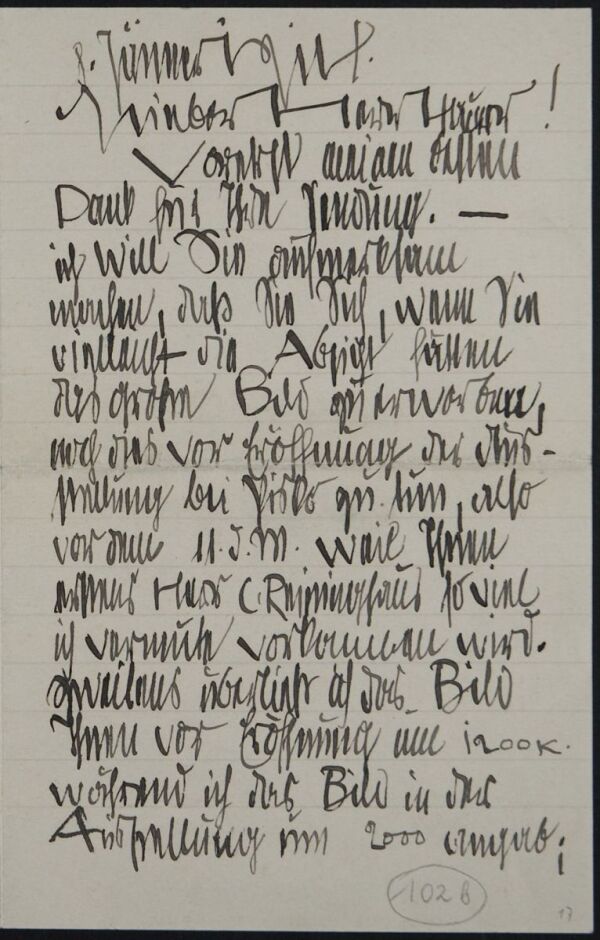 8. Jänner 1914.
Lieber Herr Hauer!
Vorerst meinen besten
Dank für Ihre Sendung. —
ich will Sie aufmerksam
machen, daß Sie Sich, wenn Sie
vielleicht die Absicht hätten
das große Bild zu erwerben,
noch dies vor Eröffnung der Aus-
stellung bei Pisko zu tun, also
vor dem 11. d. M. weil Ihnen
erstens Herr C. Reininghaus so viel
ich vermute vorkommen wird.
zweitens überließ ich das Bild
Ihnen vor Eröffnung um 1200 K.
während ich das Bild in der
Ausstellung um 2000 angab;
102 B
17